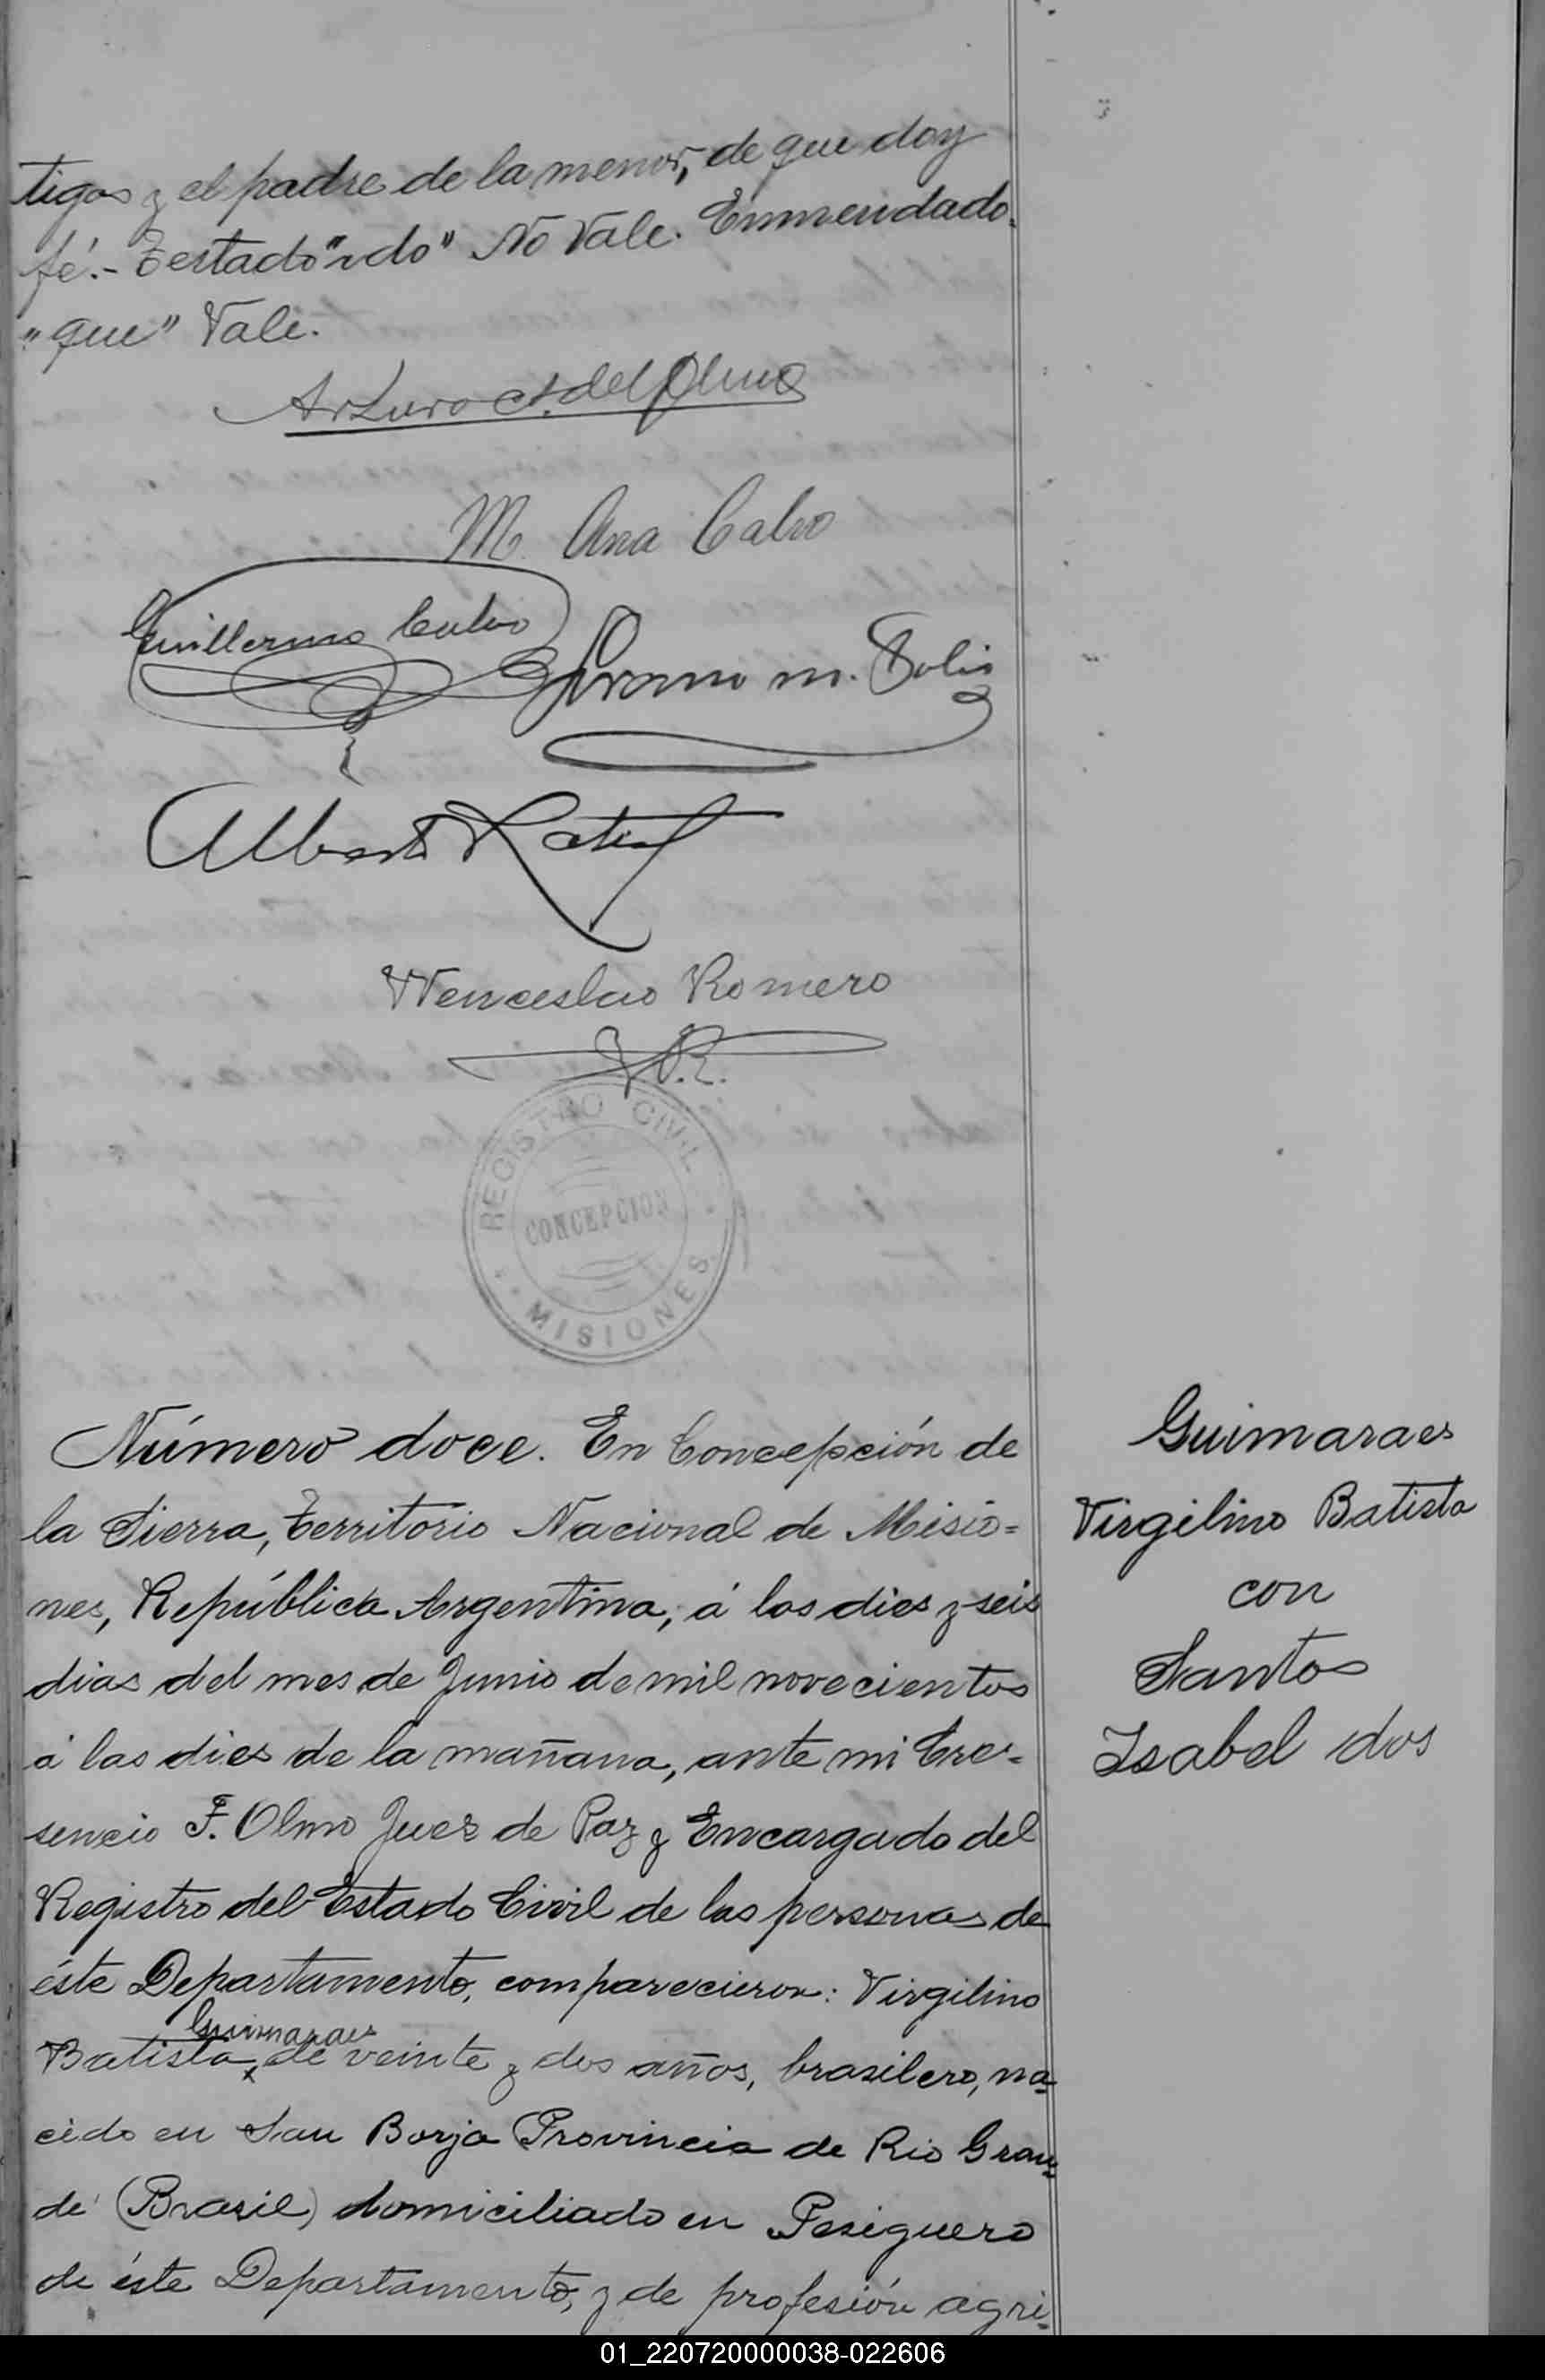 tigos y el padre de la menor, de que doy
fé.- Testado "do" No Vale. Enmendado.
"que" Vale.
Arturo A. del Olmo
M. Ana Calvo
Guillermo Calvo
m. Solis
Alberto
Wenceslao Romero
W.R.
REGISTRO CIVIL
CONCEPCION
MISIONES
Número doce. En Concepción de
la Sierra, Territorio Nacional de Misio=
nes, República Argentina, á los dies y seis
dias del mes de Junio de mil novecientos
á las dies de la mañana, ante mi Cre=
sencio F. Olmo Juez de Paz y Encargado del
Registro del Estado Civil de las personas de
éste Departamento, comparecieron: Virgilino
Guimaraes
Batista x de veinte y dos años, brasilero, na=
cido en San Borja Provincia de Rio Gran=
de (Brasil) domiciliado en Pesiguero
de éste Departamento, y de profesión agri=
Guimaraes
Virgilino Batista
con
Santos
Isabel dos
01_220720000038-022606